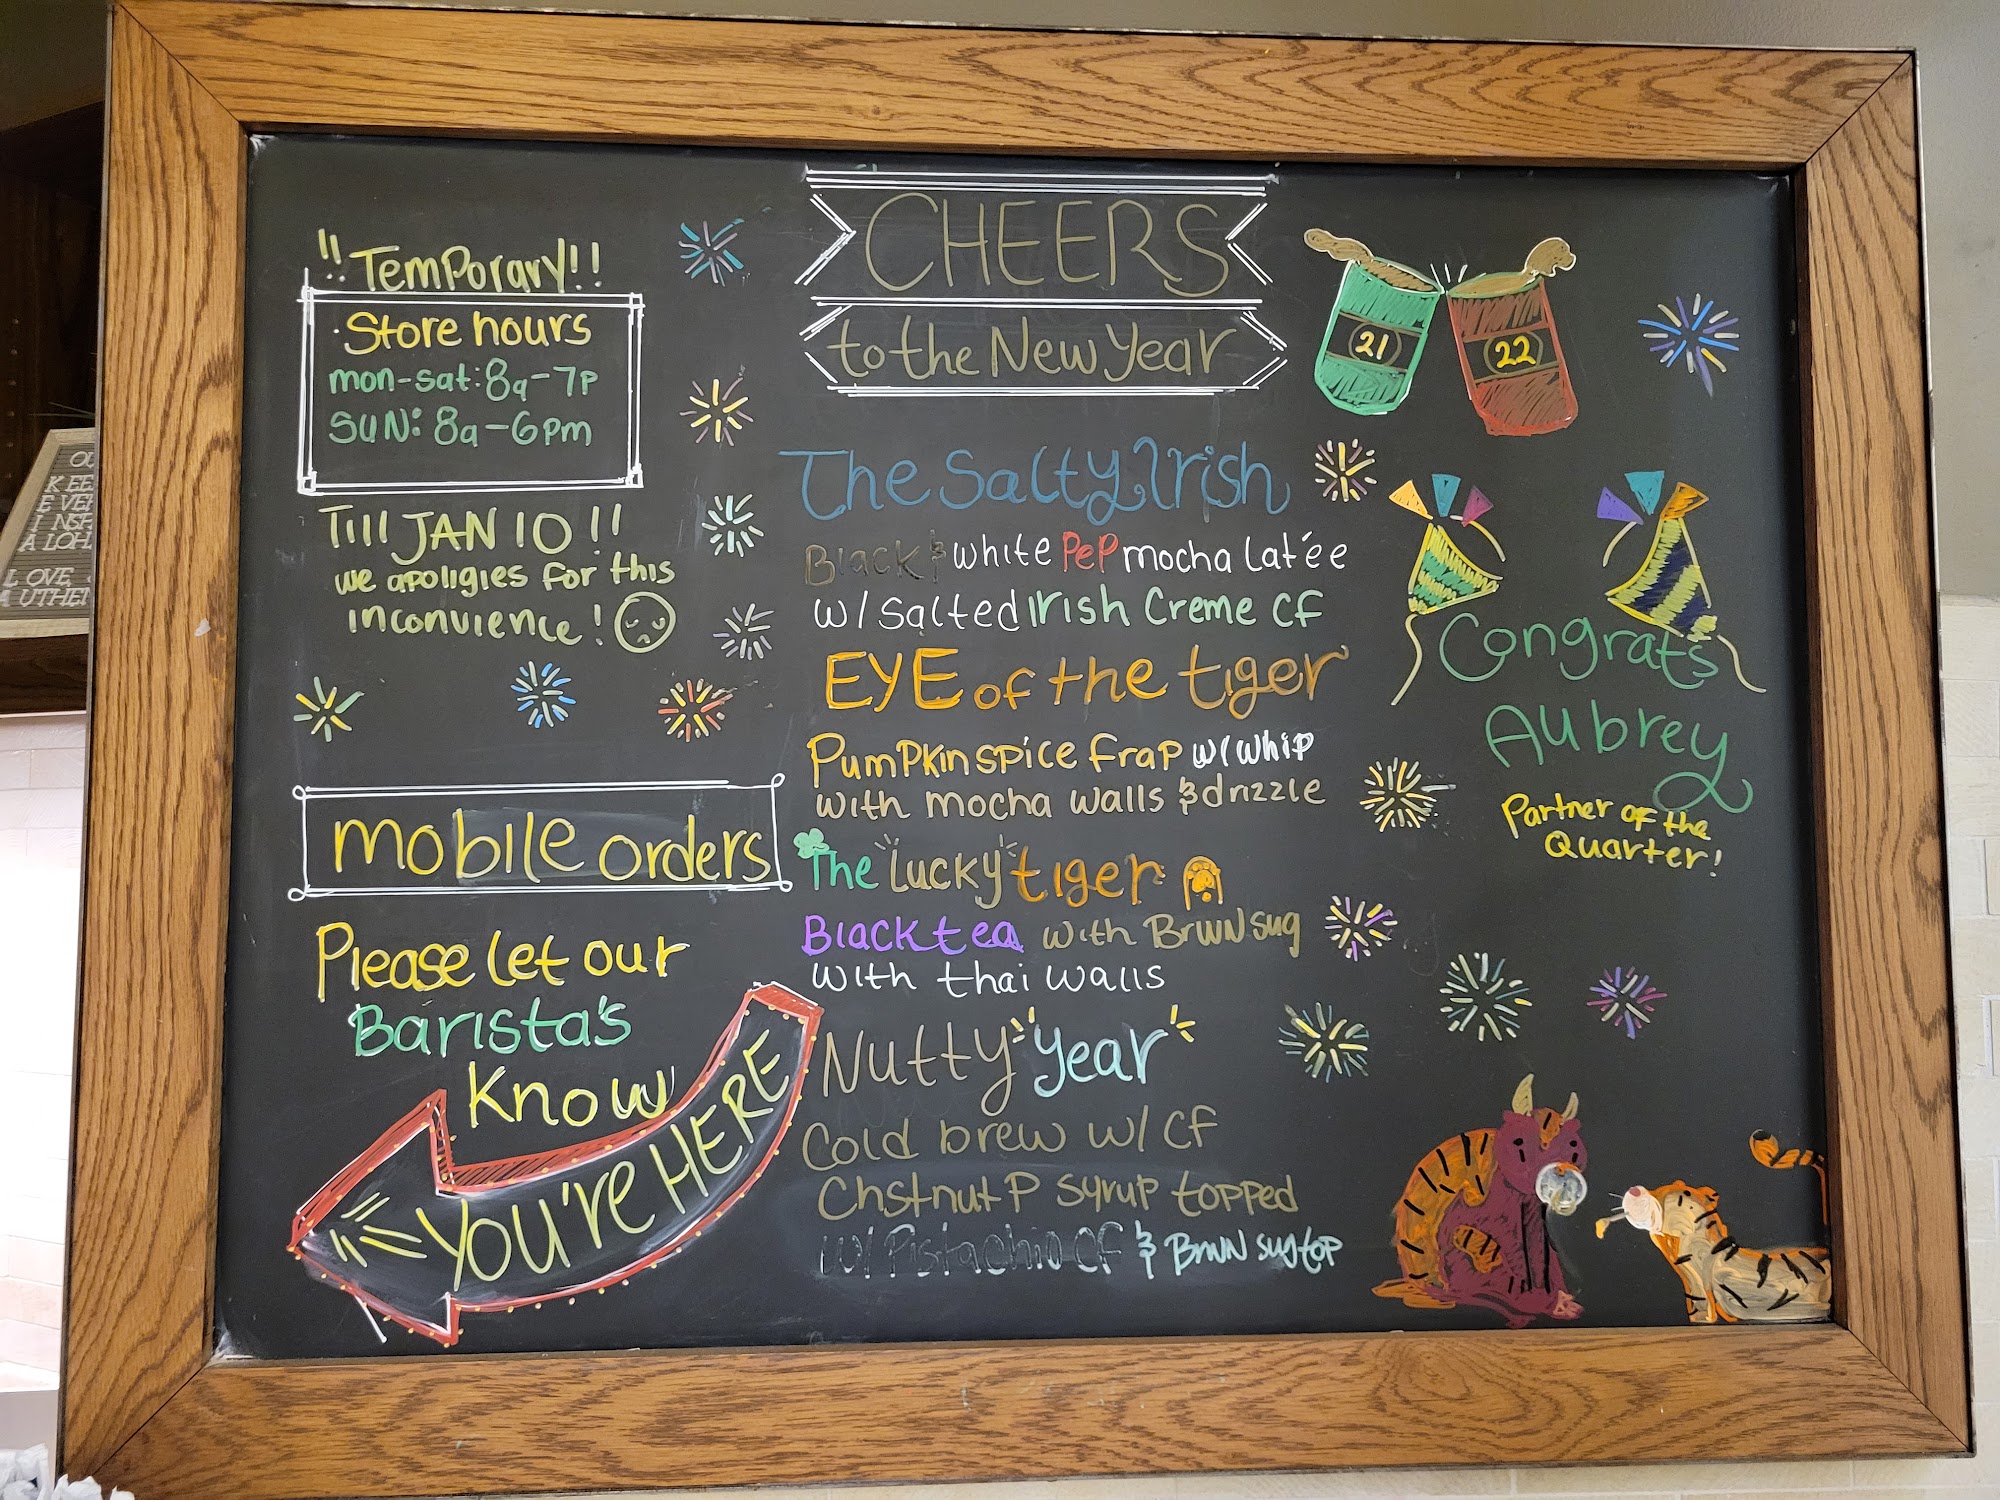 "Temporary!!
Store hours
mon-sat: 8a-7p
SUN: 8a-6pm
Till JAN 10!!
we apoligies for this
inconvience!
mobile orders
Please let our
Barista's
Know
YOU're HERE
CHEERS
to the New Year
21
22
The Salty Irish
Black & white Pep mocha latée
w/ Salted Irish Creme CF
EYE of the tiger
Pumpkin spice frap w/ whip
with mocha walls & drizzle
The Lucky tiger
Black tea with Brwn sug
with thai walls
Nutty Year
Cold brew w/ CF
Chstnut P syrup topped
w/ Pistachio CF & Brwn sug top
Congrats
Aubrey
Partner of the
Quarter!